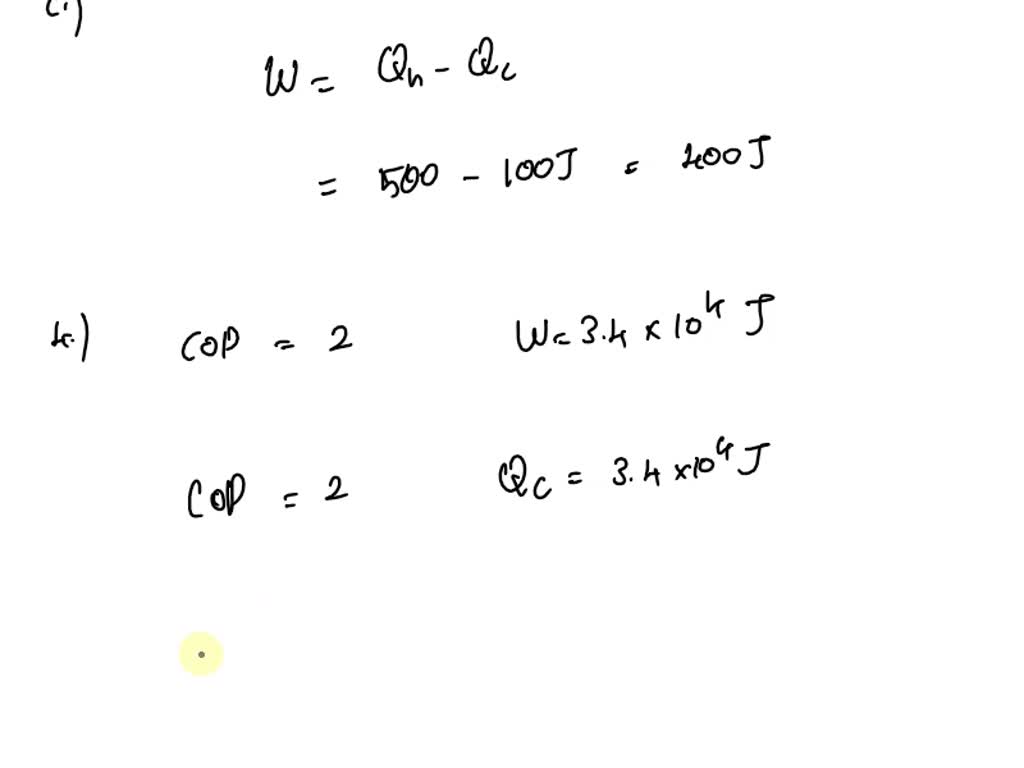 (i)
W = Qh - Qc
= 500 - 100J = 400J
4.) COP = 2 W = 3.4 × 10⁴ J
COP = 2 Qc = 3.4 × 10⁴ J